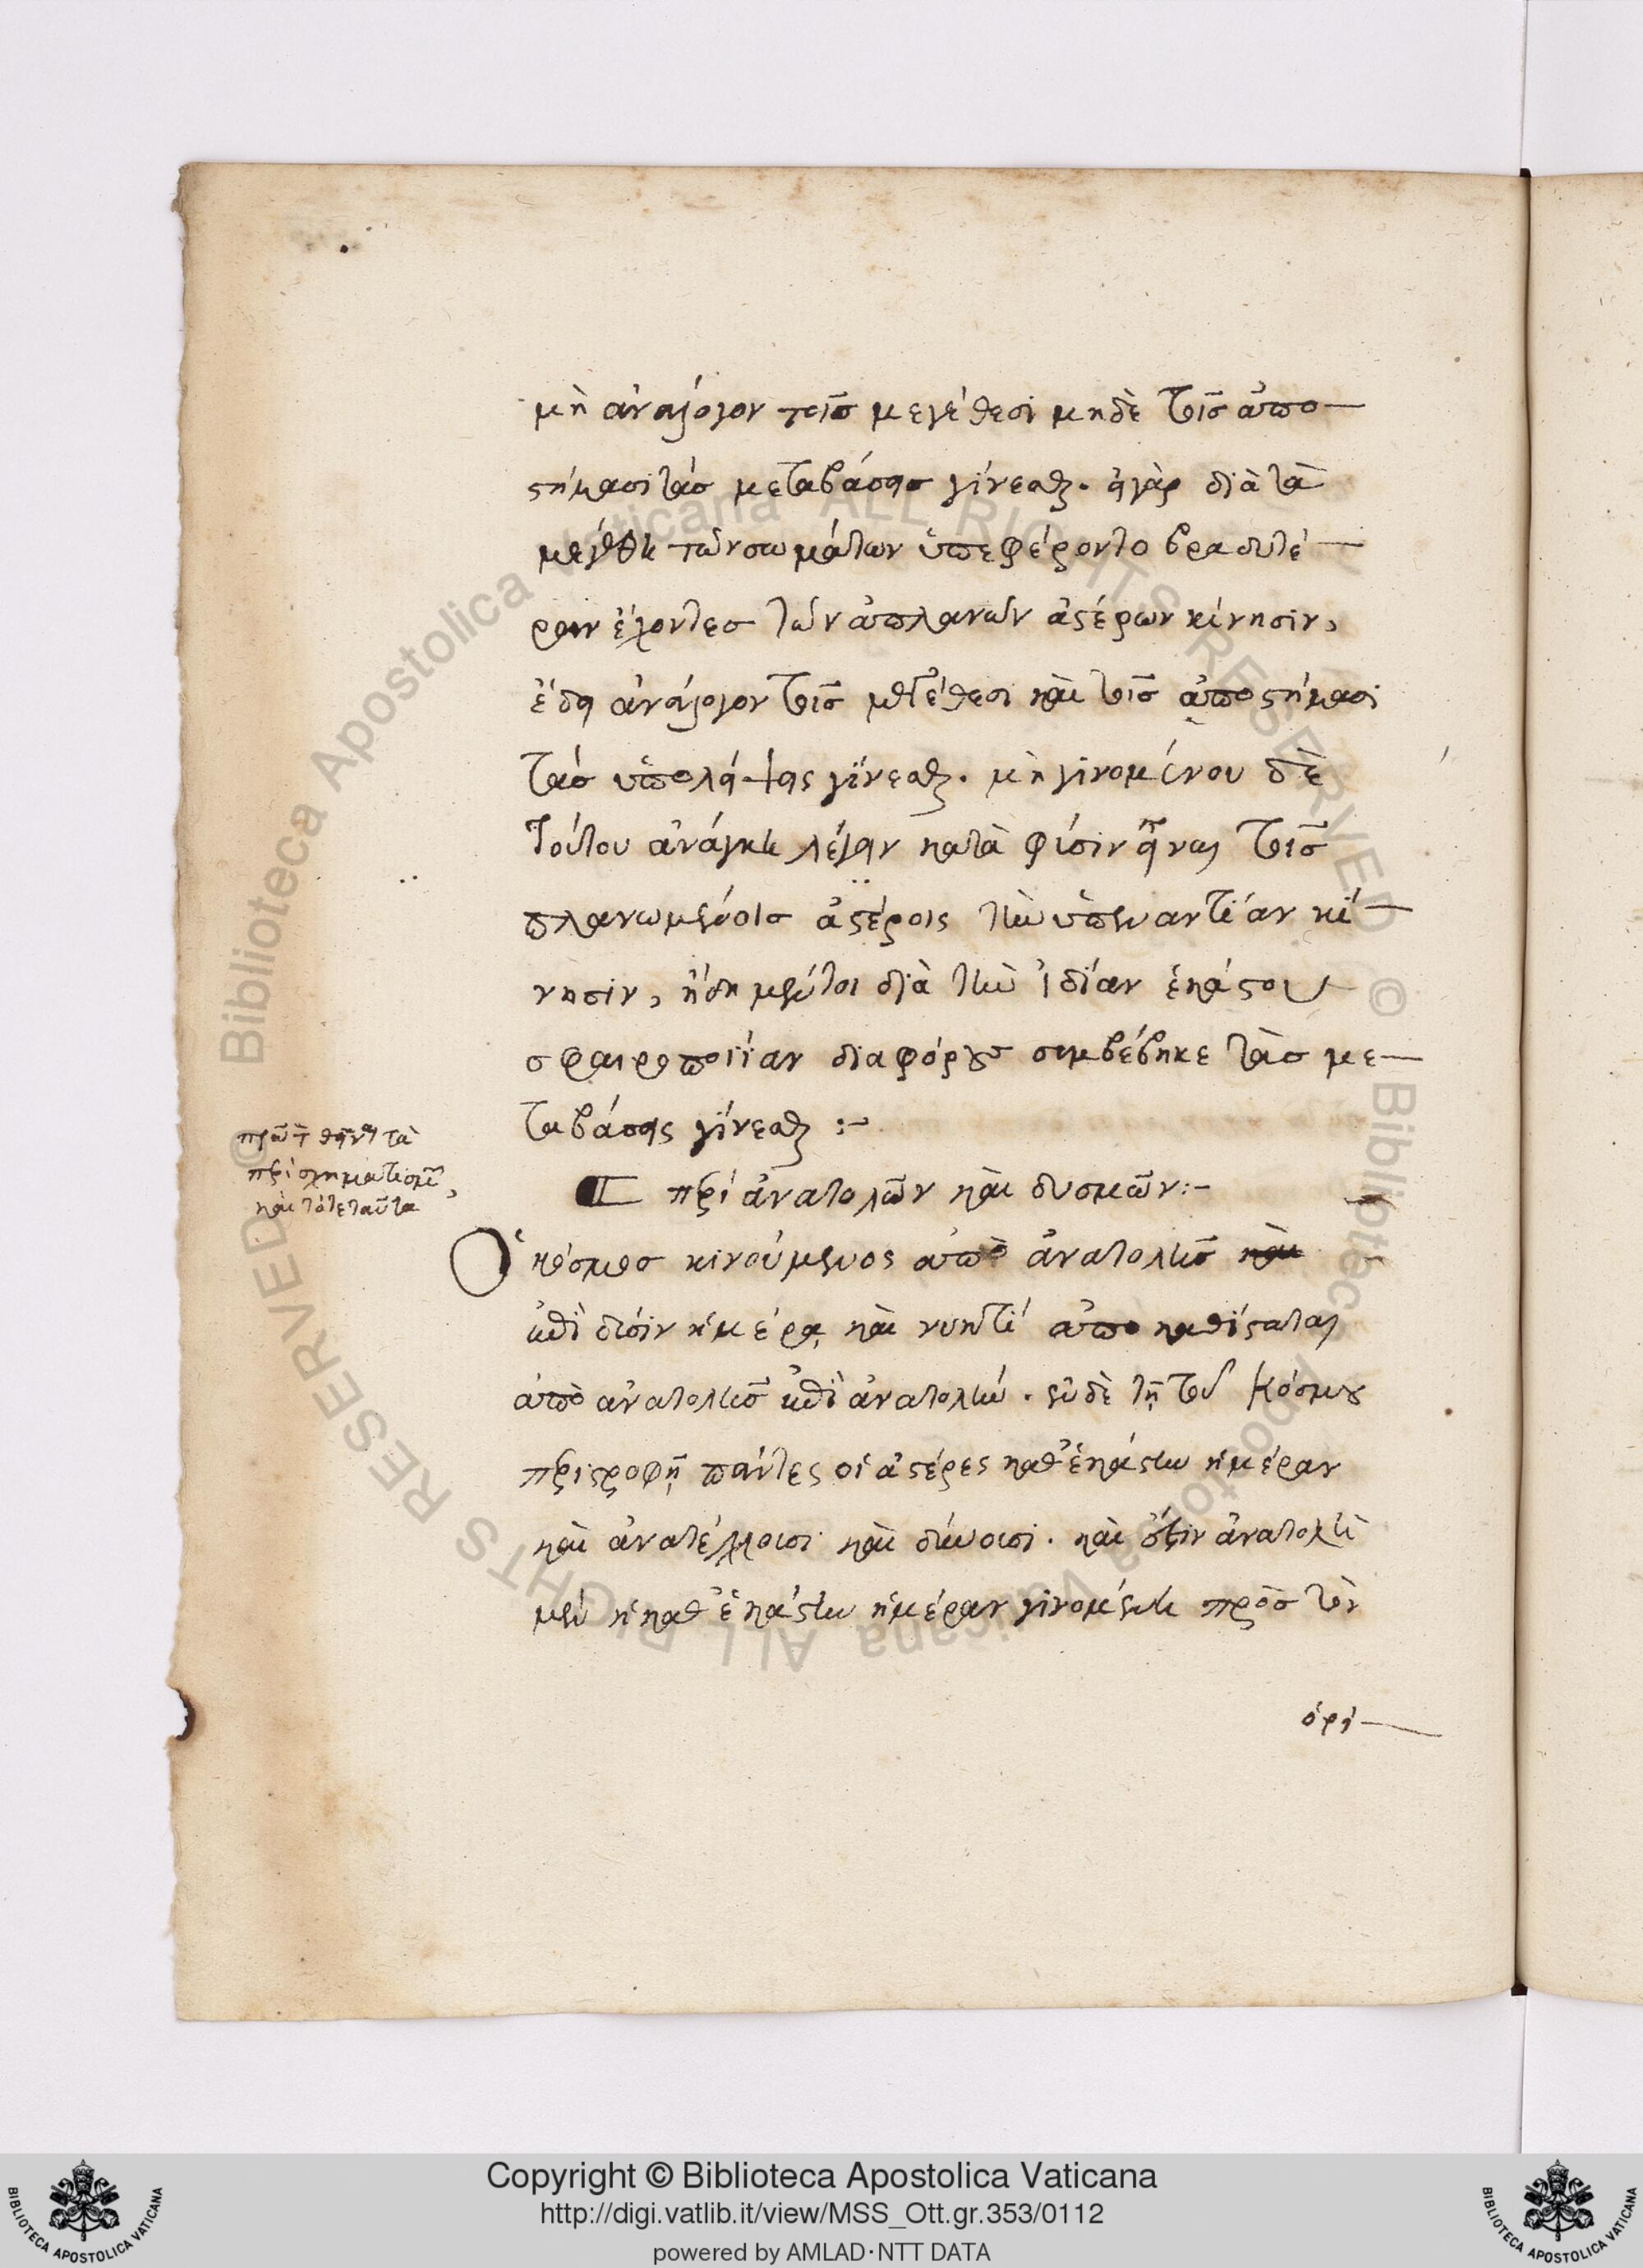 μὴ ἀνάλογον τοῖς μεγέθεσι μηδὲ τοῖς ἀπο—
στήμασι τὰς μεταβάσεις γίνεσθαι. εἰ γὰρ διὰ τὰ
μεγέθη τῶν σωμάτων ὑπεφέροντο βραδυτέ—
ραν ἔχοντες τῶν ἀπλανῶν ἀστέρων κίνησιν,
ἔδει ἀνάλογον τοῖς μεγέθεσι καὶ τοῖς ἀποστήμασι
τὰς ὑπολήψεις γίνεσθαι. μὴ γινομένου δὲ
τούτου ἀνάγκη λέγειν κατὰ φύσιν εἶναι τοῖς
πλανωμένοις ἀστέροις τὴν ὑπεναντίαν κί—
νησιν, ἤδη μέντοι διὰ τὴν ἰδίαν ἑκάστου
σφαιροποιΐαν διαφόρους συμβέβηκε τὰς με—
ταβάσεις γίνεσθαι :~
πρῶτον θεῖναι τὰ
περὶ σχηματισμῶν,
καὶ τότε ταῦτα
περὶ ἀνατολῶν καὶ δυσμῶν :~
Ὁ κόσμος κινούμενος ἀπὸ ἀνατολῆς καὶ
ἐπὶ δύσιν ἡμέρᾳ καὶ νυκτὶ ἀποκαθίσταται
ἀπὸ ἀνατολῆς ἐπὶ ἀνατολήν. ἐν δὲ τῇ τοῦ κόσμου
περιστροφῇ πάντες οἱ ἀστέρες καθ' ἑκάστην ἡμέραν
καὶ ἀνατέλλουσι καὶ δύνουσι. καὶ ἔστιν ἀνατολὴ
μὲν ἡ καθ' ἑκάστην ἡμέραν γινομένη πρὸς τὸν
ὁρί—
Copyright © Biblioteca Apostolica Vaticana
http://digi.vatlib.it/view/MSS_Ott.gr.353/0112
powered by AMLAD·NTT DATA
BIBLIOTECA APOSTOLICA VATICANA
BIBLIOTECA APOSTOLICA VATICANA
© Biblioteca Apostolica Vaticana ALL RIGHTS RESERVED © Biblioteca Apostolica Vaticana ALL RIGHTS RESERVED